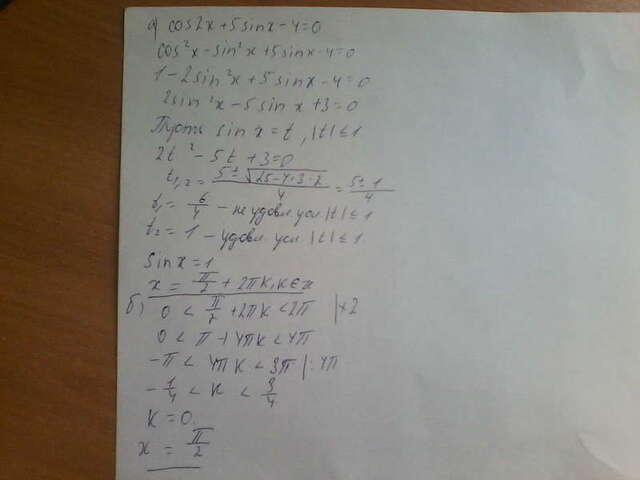 а) cos2x + 5sinx - 4 = 0
cos²x - sin²x + 5sinx - 4 = 0
1 - 2sin²x + 5sinx - 4 = 0
2sin²x - 5sinx + 3 = 0
Пусть sinx = t, |t| ≤ 1
2t² - 5t + 3 = 0
t₁,₂ = (5 ± √(25 - 4·3·2))/4 = (5 ± 1)/4
t₁ = 6/4 - не удовл усл |t| ≤ 1
t₂ = 1 - удовл усл |t| ≤ 1
sinx = 1
x = π/2 + 2πk, k ∈ z
б) 0 < π/2 + 2πk < 2π |×2
0 < π + 4πk < 4π
-π < 4πk < 3π |: 4π
-1/4 < k < 3/4
k = 0
x = π/2